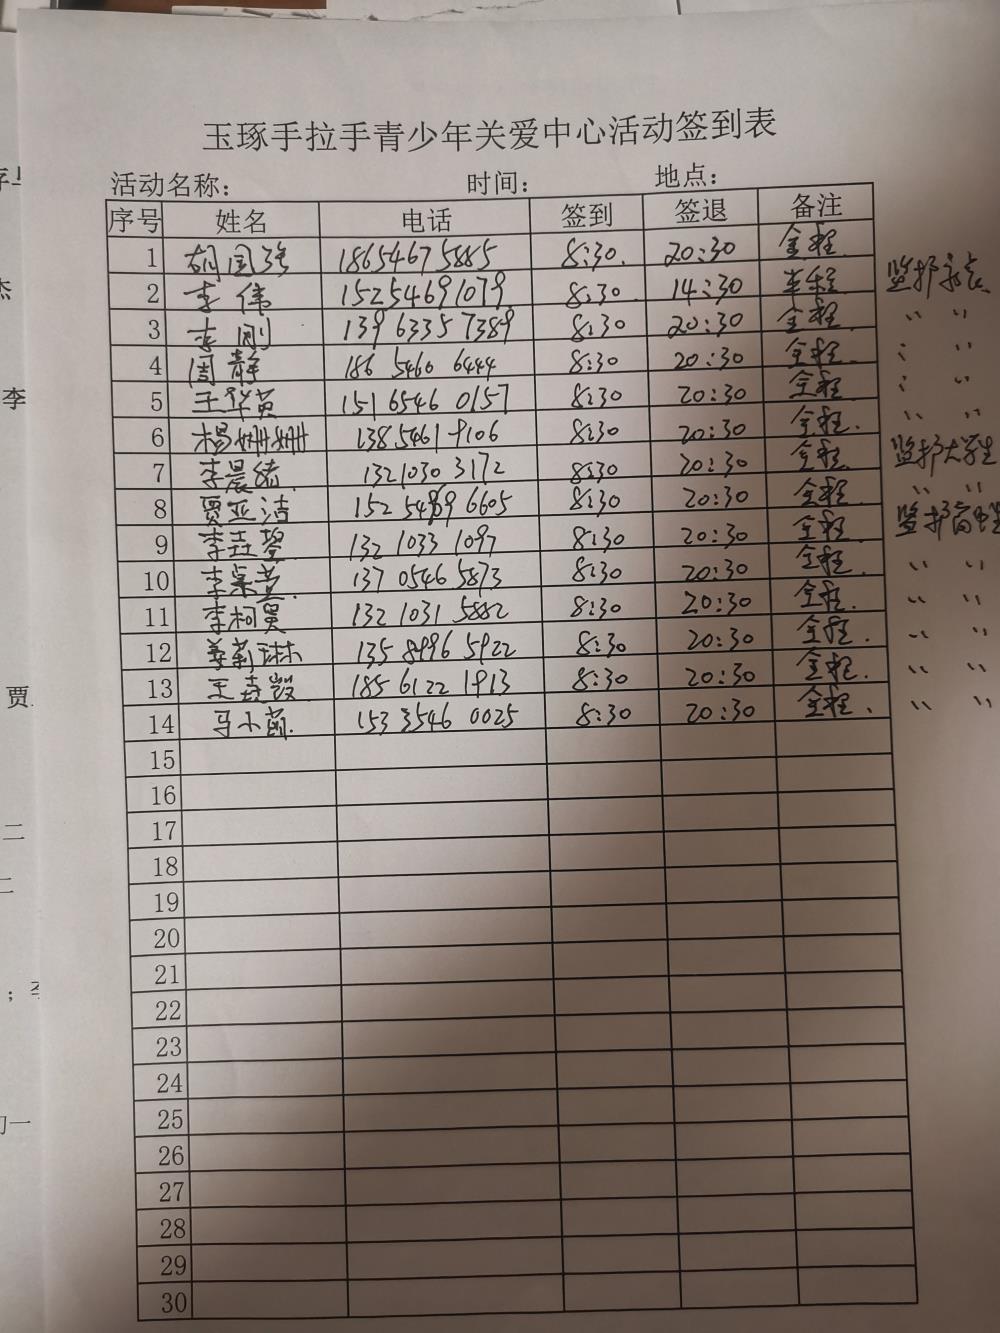 玉琢手拉手青少年关爱中心活动签到表
活动名称： 时间： 地点：
序号 姓名 电话 签到 签退 备注
1 胡国强 18654675885 8:30. 20:30 全程.
2 李伟 15254691079 8:30. 14:30 半程 监护家长
3 李刚 139 6335 7389 8:30 20:30 全程. 〃 〃
4 周静 186 5460 6444 8:30 20:30 全程. 〃
5 王华英 151 6546 0157 8:30 20:30 全程. 〃
6 杨姗姗 138 5461 9106 8:30 20:30 全程. 〃 〃
7 李晨 132 1030 3172 8:30 20:30 全程. 监护大学生
8 贾亚洁 152 5489 6605 8:30 20:30 全程. 〃 〃
9 李垚 132 1033 1097 8:30 20:30 全程. 监护高中生
10 李 137 0546 5873 8:30 20:30 全程. 〃 〃
11 李柯昊 132 1031 5882 8:30 20:30 全程. 〃 〃
12 姜莉琳 135 8996 5922 8:30 20:30 全程. 〃 〃
13 王垚 185 6122 1913 8:30 20:30 全程. 〃 〃
14 马小萌. 153 3546 0025 8:30 20:30 全程. 〃 〃
15
16
17
18
19
20
21
22
23
24
25
26
27
28
29
30
杰
李
贾
二
二
；李
初一